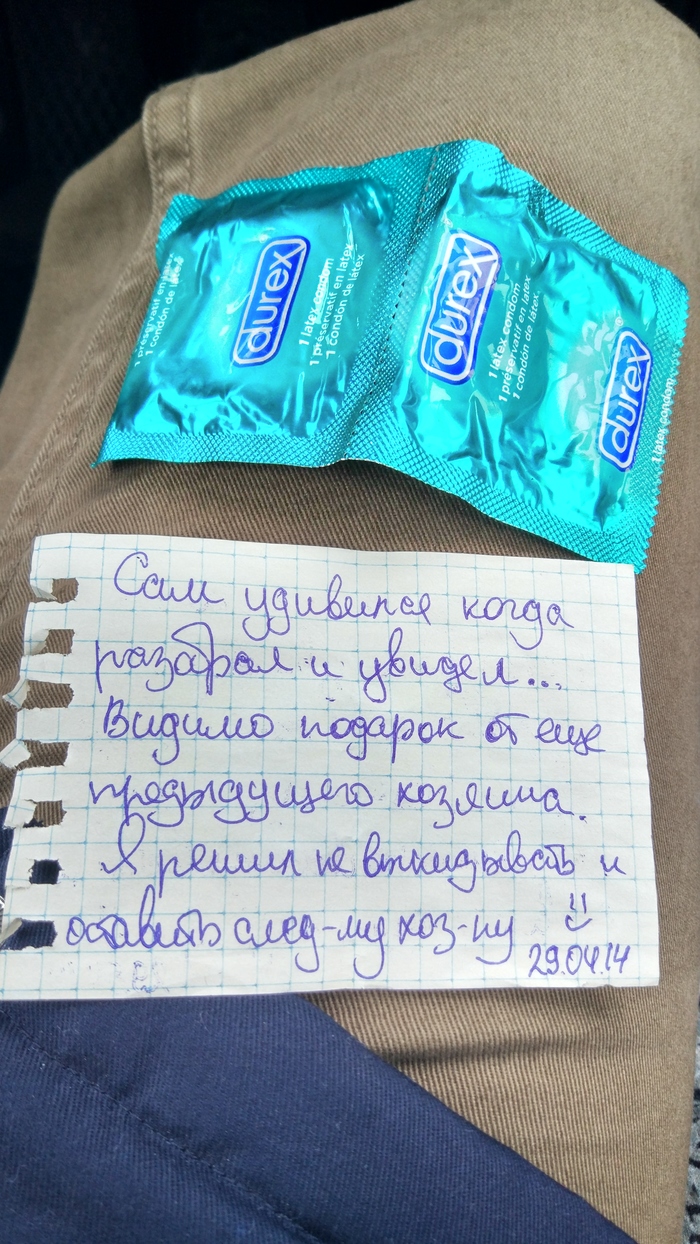 1 préservatif en latex
1 condón de látex
durex
1 latex condom
1 préservatif en latex
1 condón de látex
durex
1 latex condom
1 préservatif en latex
1 condón de látex.
durex®
1 latex condom
Сам удивился когда
разобрал и увидел...
Видимо подарок от еще
предыдущего хозяина.
Я решил не выкидывать и
оставить след-му хоз-ну
29.04.14